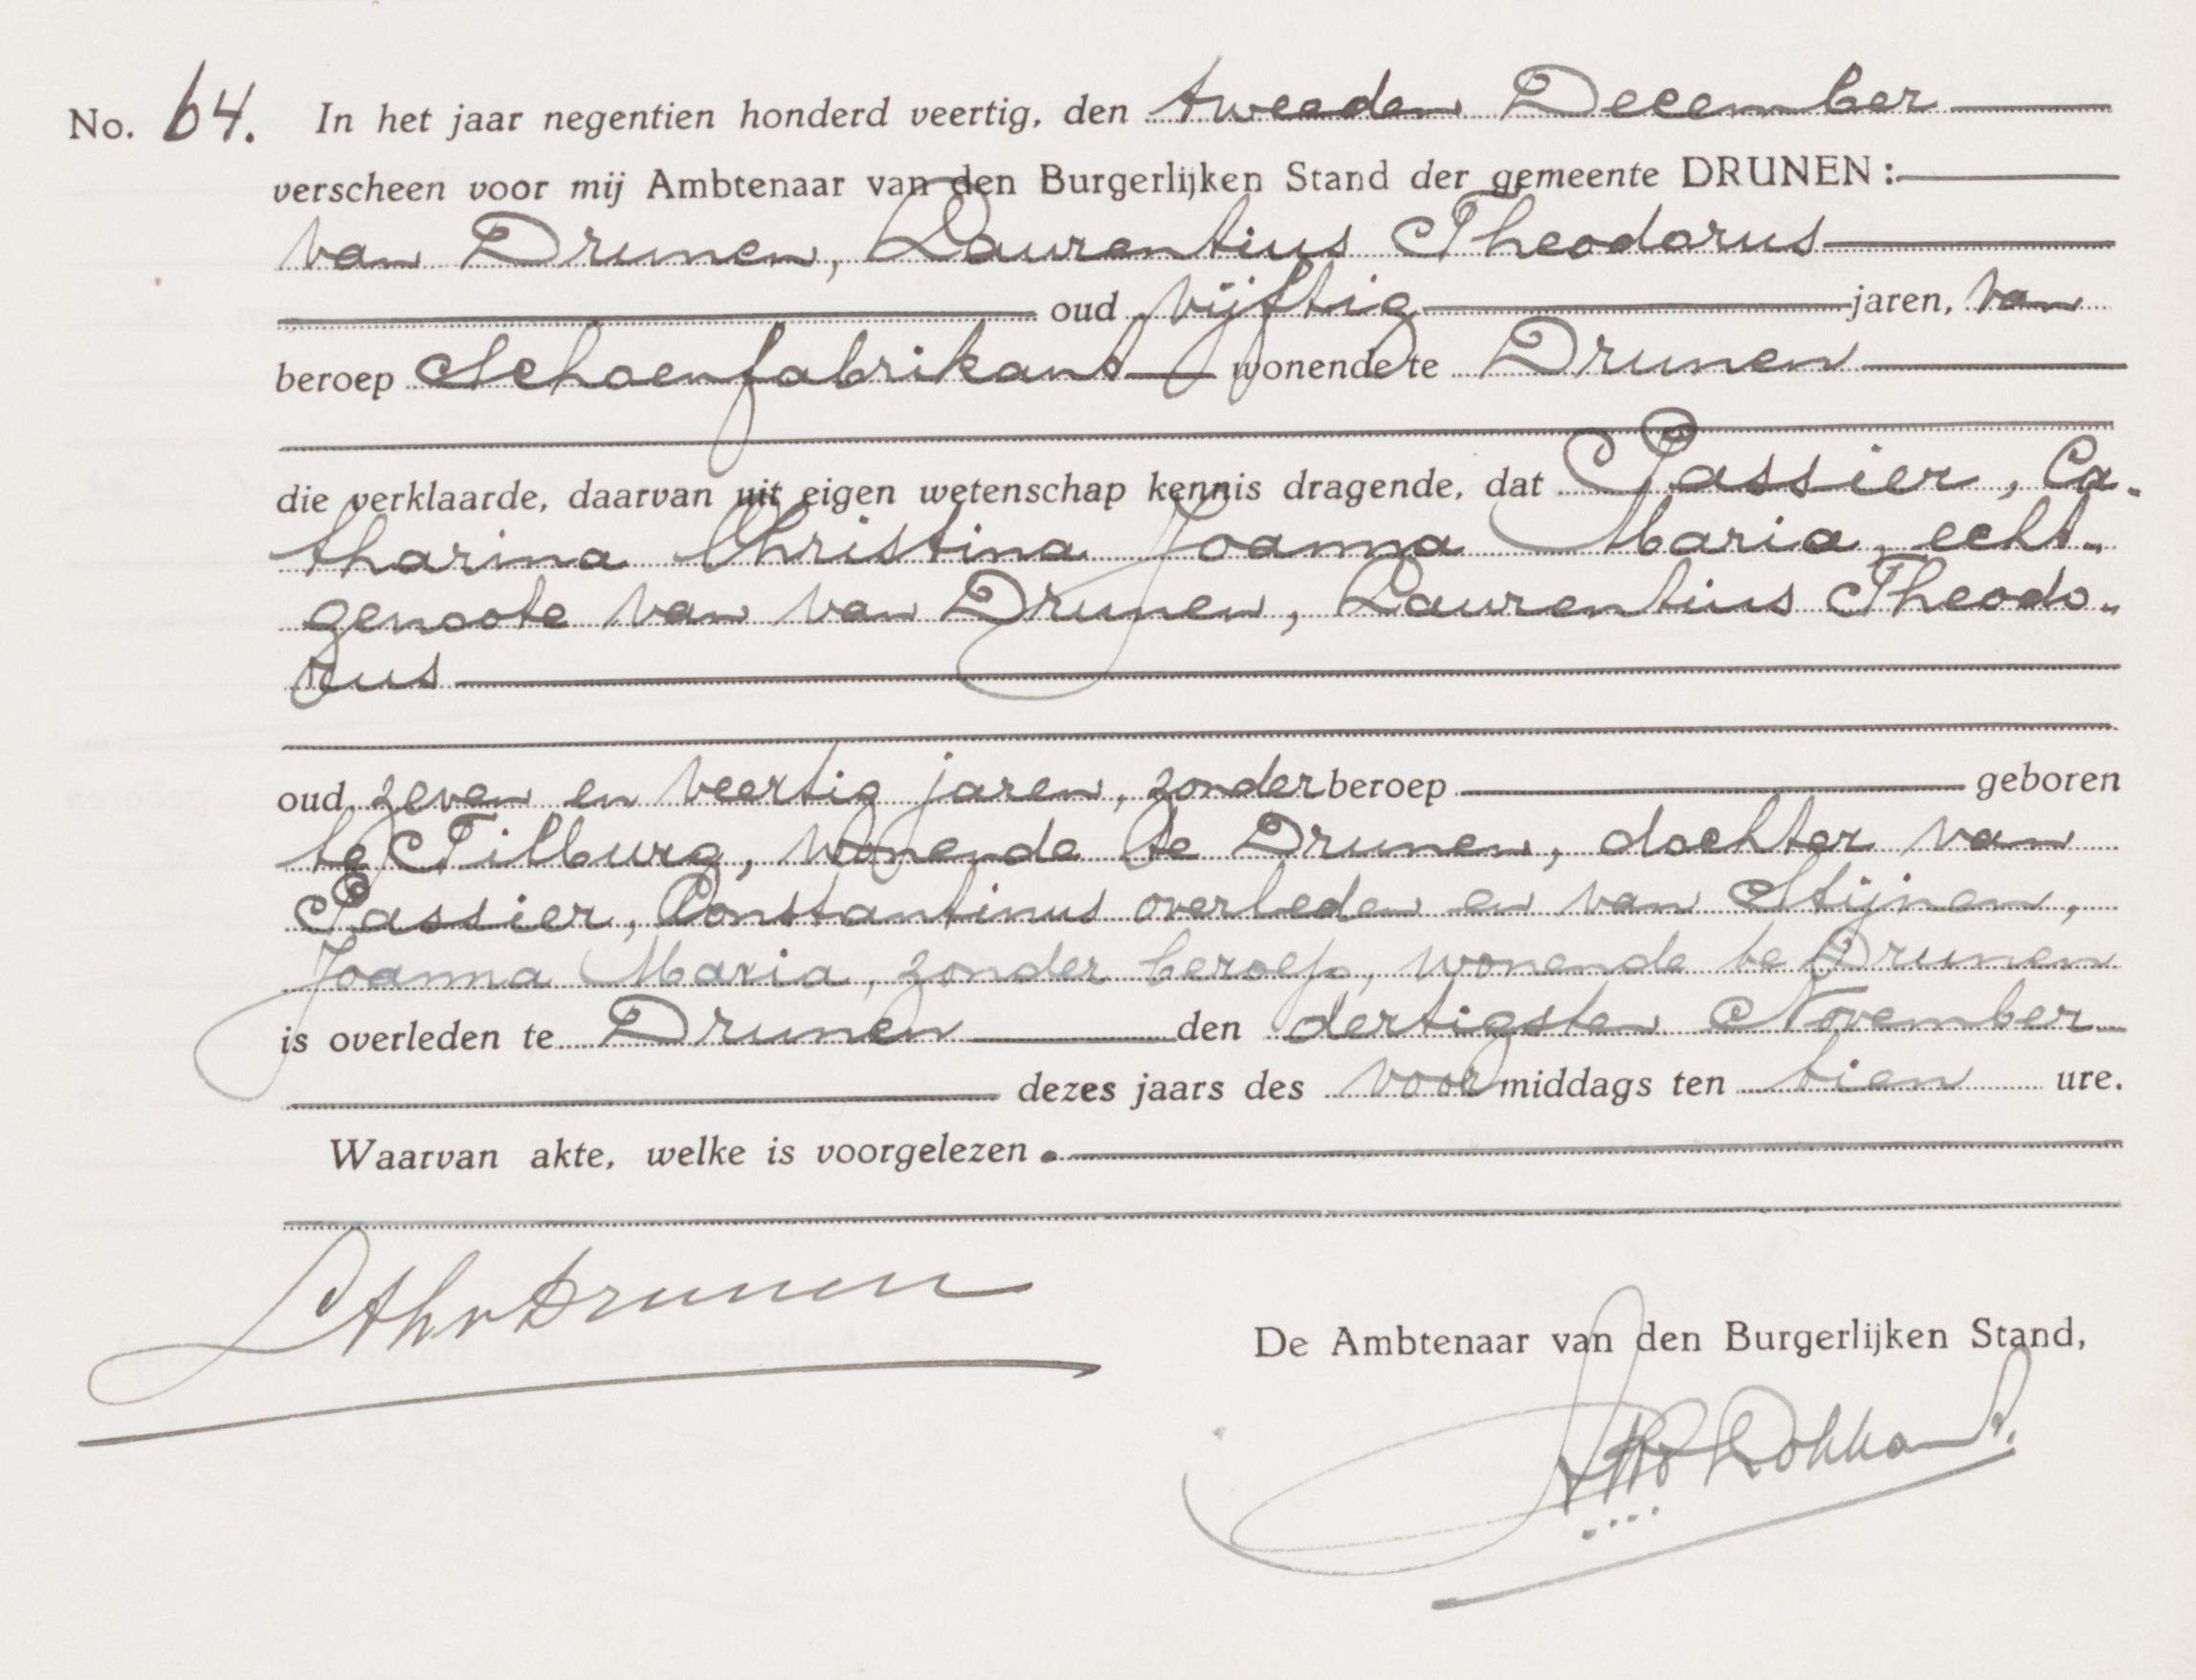 No. 64. In het jaar negentien honderd veertig, den tweeden December
verscheen voor mij Ambtenaar van den Burgerlijken Stand der gemeente DRUNEN:
van Drunen, Laurentius Theodorus
oud vijftig jaren, van
beroep Schoenfabrikant wonende te Drunen
die verklaarde, daarvan uit eigen wetenschap kennis dragende, dat Passier, Ca-
tharina Christina Joanna Maria, echt-
genoote van van Drunen, Laurentius Theodo-
rus
oud zeven en veertig jaren, zonder beroep geboren
te Tilburg, wonende te Drunen, dochter van
Passier, Constantinus overleden en van Stijnen,
Joanna Maria, zonder beroep, wonende te Drunen
is overleden te Drunen den dertigsten November
dezes jaars des voormiddags ten tien ure.
Waarvan akte, welke is voorgelezen.
LThvDrunen
De Ambtenaar van den Burgerlijken Stand,